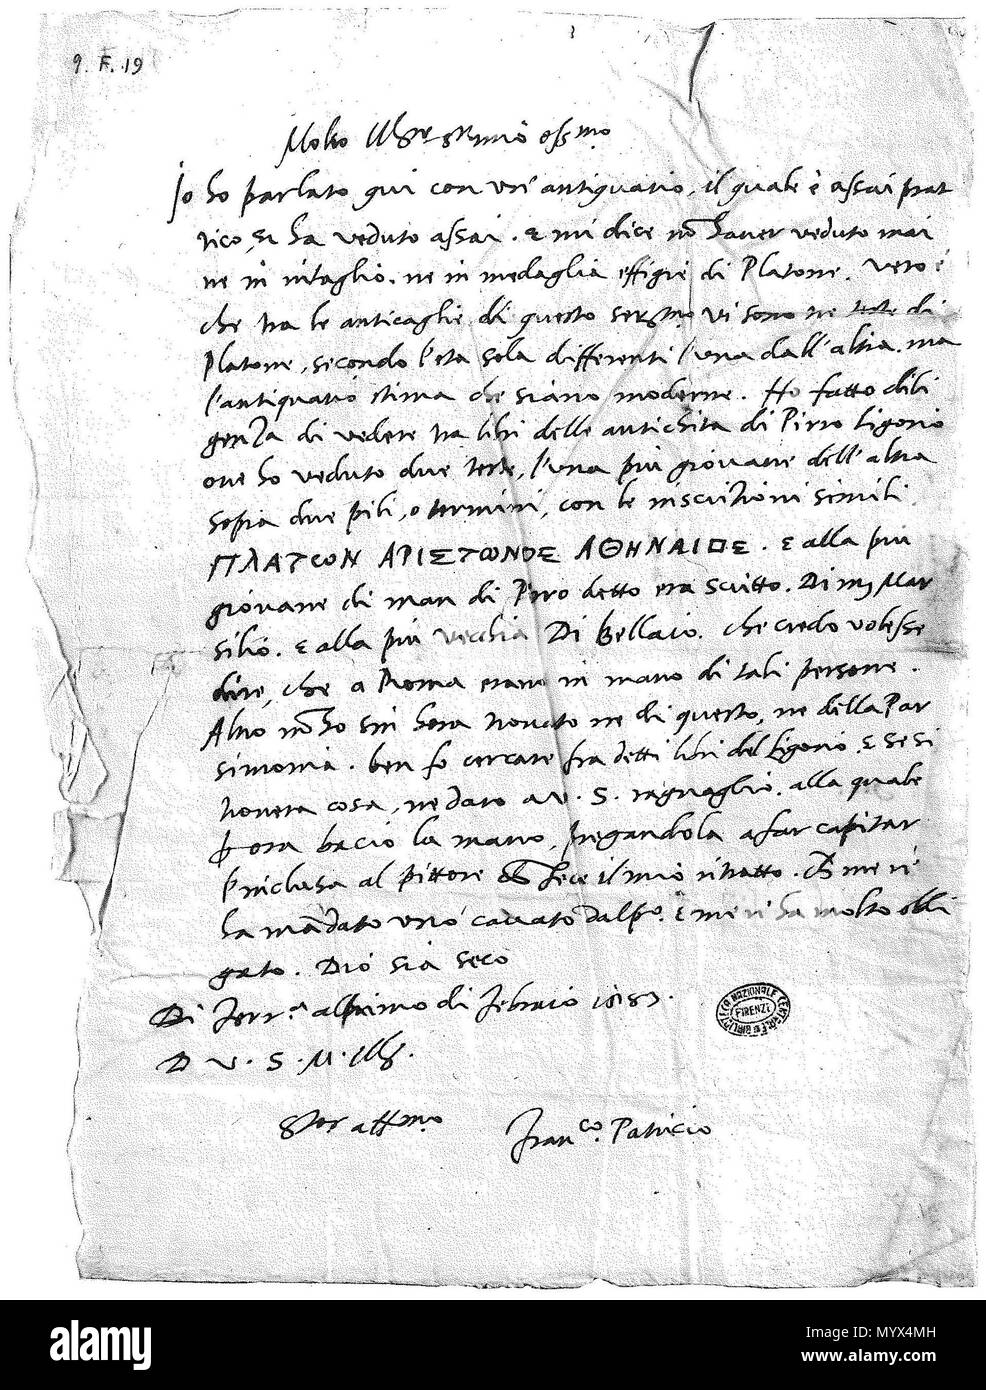 9. F. 19
Molto Ill.re S.r mio oss.mo
Io ho parlato qui con un' antiquario, il quale è assai prat
tico, et ha veduto assai. e mi dice nō haver veduto mai
ne in intaglio, ne in medaglia effigie di Platone. Vero è
che tra le anticaglie di questo ser.mo vi sono tre teste di
Platone, secondo l'eta sola differenti l'una dall' altra. ma
l'antiquario stima che siano moderne. Ho fatto dili
genza di vedere tra libri delle antichita di Pirro Ligorio
ove ho veduto due teste, l'una più giovane dell' altra
sopra due pili, o termini, con le inscrizioni simili
ΠΛΑΤΩΝ ΑΡΙΣΤΩΝΟΣ ΑΘΗΝΑΙΟΣ. e alla più
giovane di man di Pirro detto era scritto. Di m Mar
silio. e alla più vecchia Di Bellaio. che credo volesse
dire, che a Roma erano in mano di tali persone.
Altro nō ho sin hora trovato ne di questo, ne della Par
simonia. ben fo cercare fra detti libri del Ligorio. e se si
trovera cosa, ne daro a V. S. raguaglio. alla quale
hora bacio la mano, pregandola a far capitar
l'inclusa al pittore che fece il mio ritratto. Che me n'
ha mādato uno cavato dal p.o e me n' ha molto obli
gato. Dio sia seco
Di Ferr.a al primo di Febraio 1583.
D V. S. M. Ill.
S.tor aff.mo
Fran.co Patricio
BIBLIOTECA NAZIONALE CENTRALE
FIRENZE
alamy
Image ID: MYX4MH
www.alamy.com